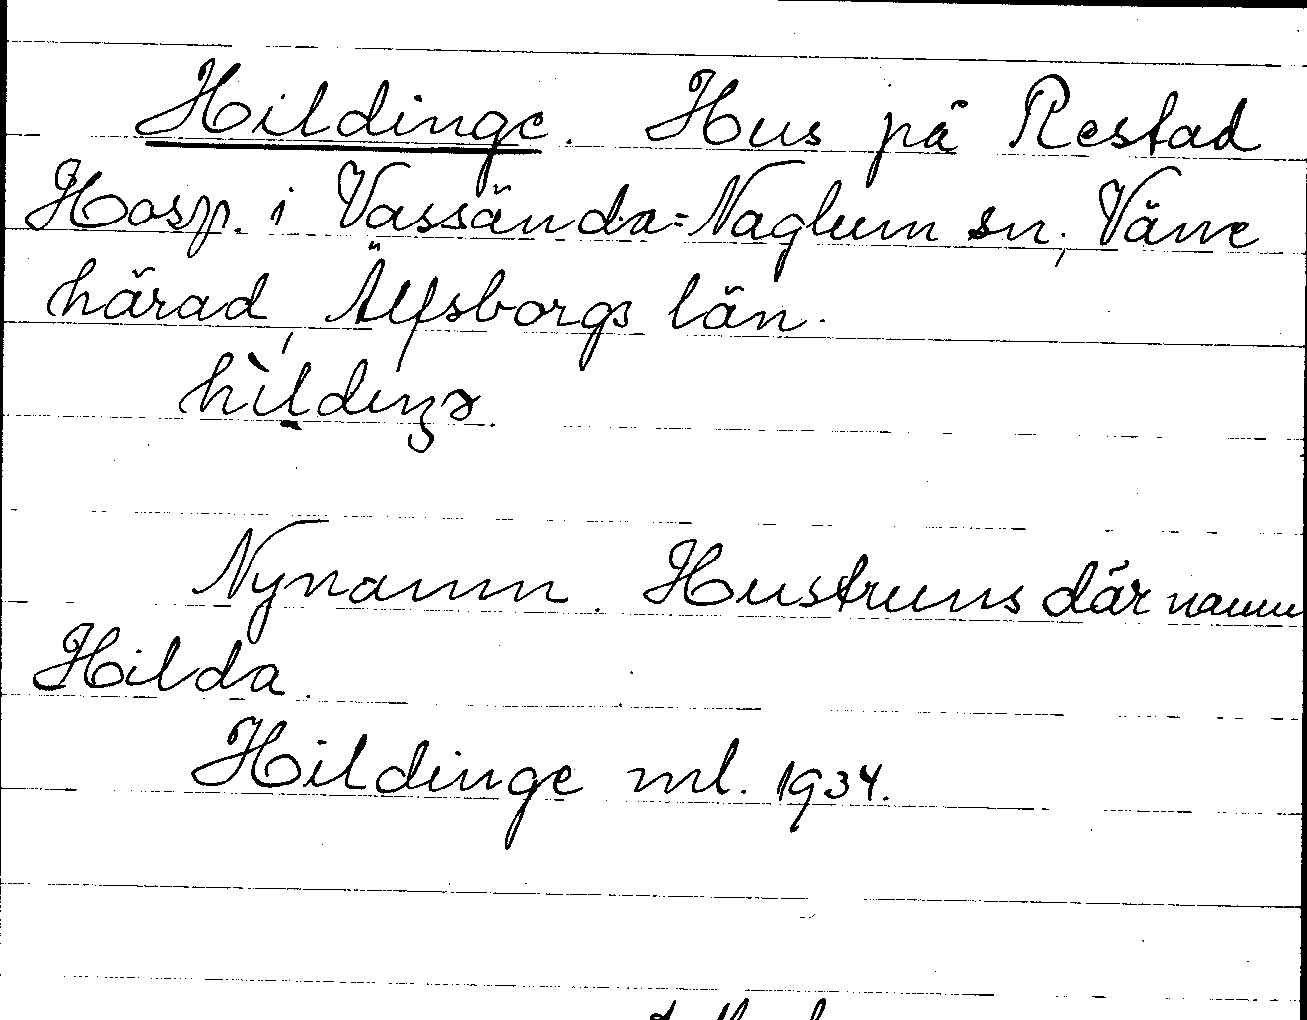 Hildinge. Hus på Restad
Hosp. i Vassända=Naglum sn; Väne
härad, Älfsborgs län.
hìldiŋə.
Nynamn. Hustruns där namn
Hilda.
Hildinge ml. 1934.